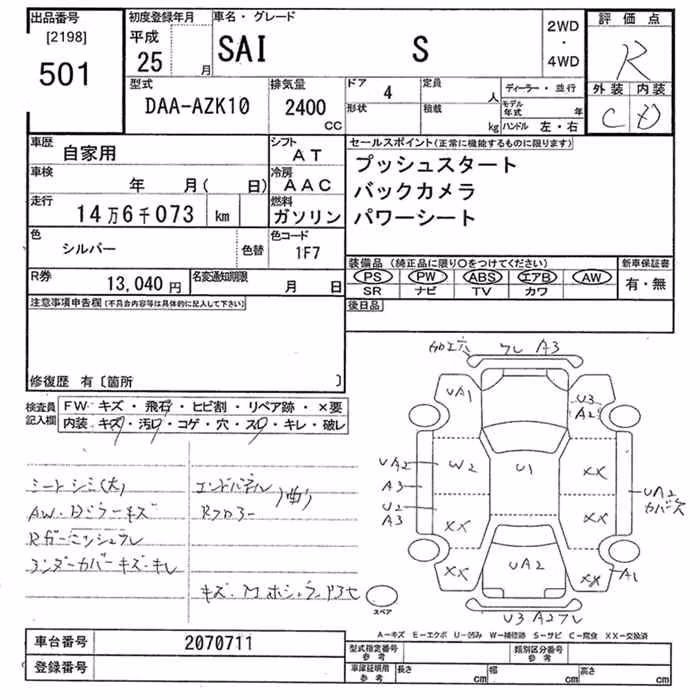 出品番号
[2198]
501
初度登録年月
平成
25 月
車名・グレード
SAI S
2WD
・
4WD
評価点
R
外装 内装
C D
型式
DAA-AZK10
排気量
2400
CC
ドア
4
形状
定員
人
積載
kg
ディーラー・並行
モデル年式 年
ハンドル 左・右
車歴
自家用
シフト
AT
車検
年 月( 日)
冷房
AAC
走行
14万6千073 km
燃料
ガソリン
色
シルバー
色替
色コード
1F7
R券
13,040 円
名変通知期限
月 日
セールスポイント(正常に機能するものに限ります)
プッシュスタート
バックカメラ
パワーシート
装備品 (純正品に限り〇をつけてください)
PS PW ABS エアB AW
SR ナビ TV カワ
新車保証書
有・無
後日品
注意事項申告欄(不具合内容等は具体的に記入して下さい)
修復歴 有〔箇所 〕
検査員
記入欄
FW キズ・飛石・ヒビ割・リペア跡・×要
内装 キズ・汚レ・コゲ・穴・スレ・キレ・破レ
シートシミ(大)
AW・Dミラーキズ
Rガーニッシュワレ
アンダーカバーキズ・キレ
エンドパネル
Rフロアー
曲り
加工穴 ワレ A3
UA1
U3
A2
UA2
A3
U2
A3
W2
U1
XX
XX
XX
UA2
カバーキズ
XX
UA2
XX
A1
U3 A2 ワレ
スペア
A−キズ E−エクボ U−凹み W−補修跡 S−サビ C−腐食 XX−交換済
車台番号
2070711
登録番号
型式指定番号
参考
類別区分番号
参考
車庫証明用
参考
長さ cm
幅 cm
高さ cm